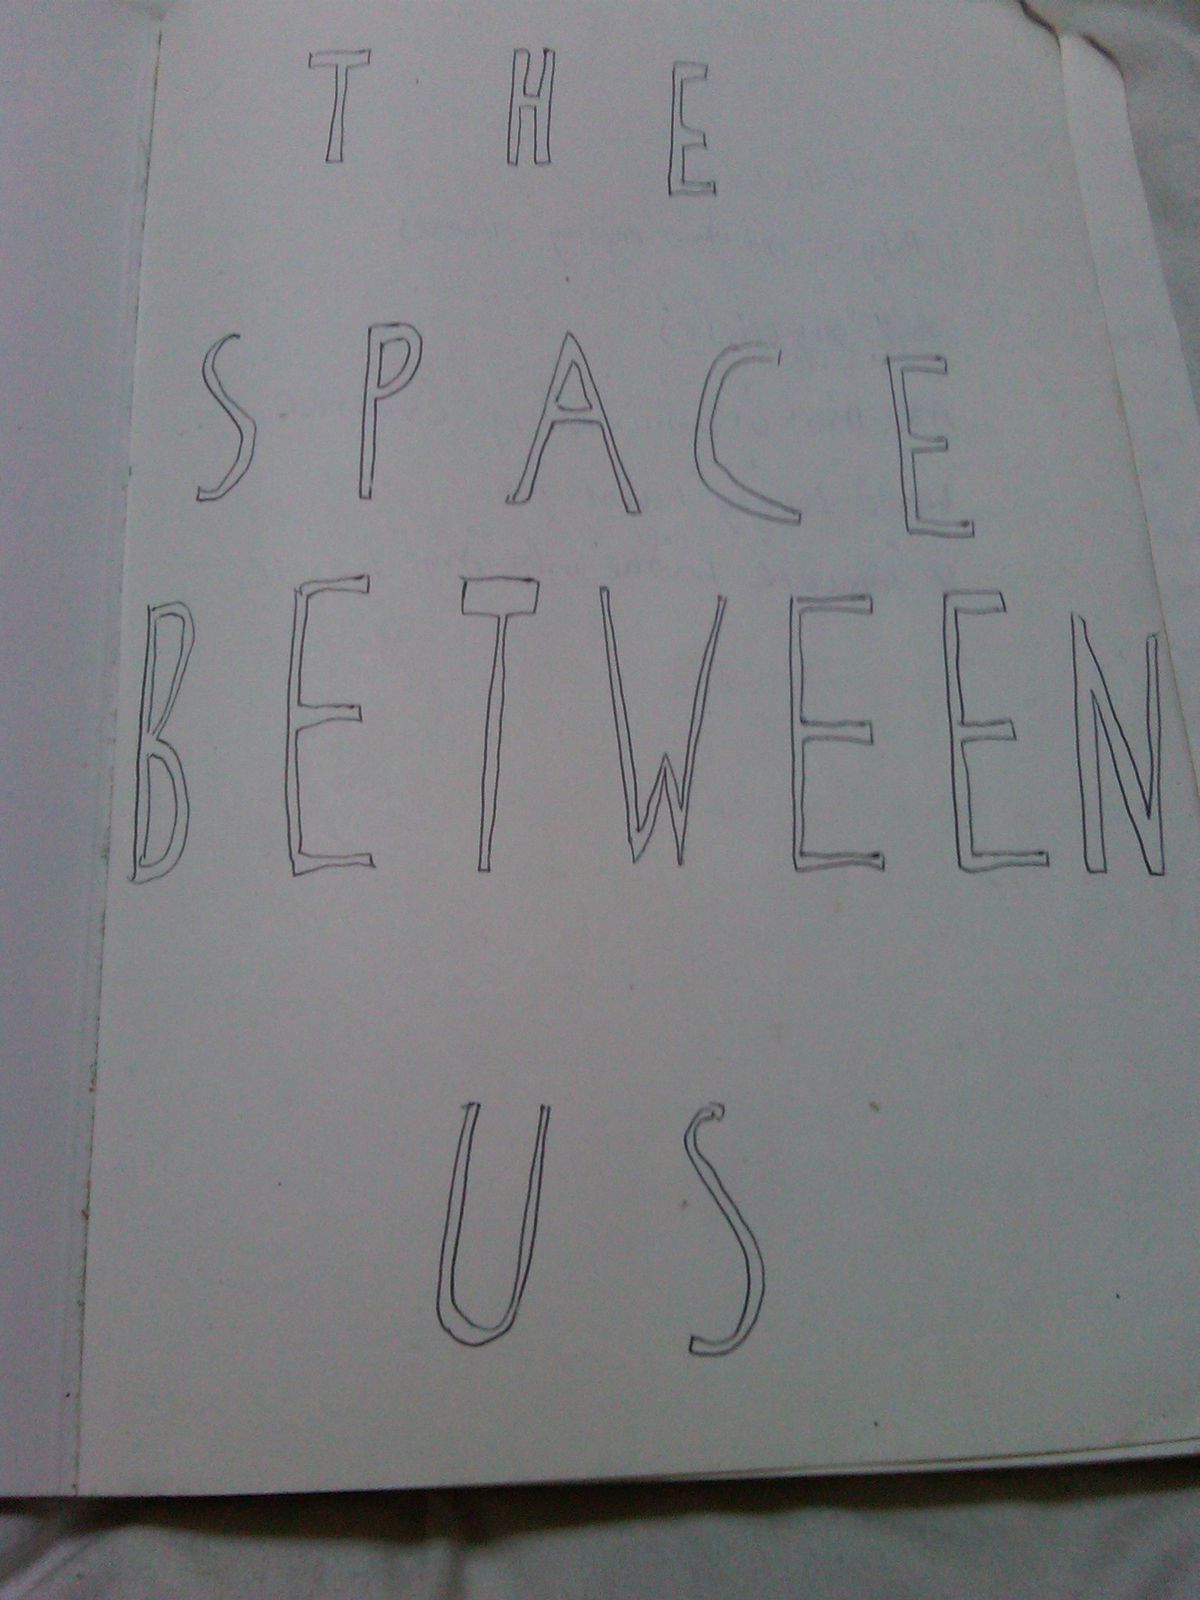 THE
SPACE
BETWEEN
US